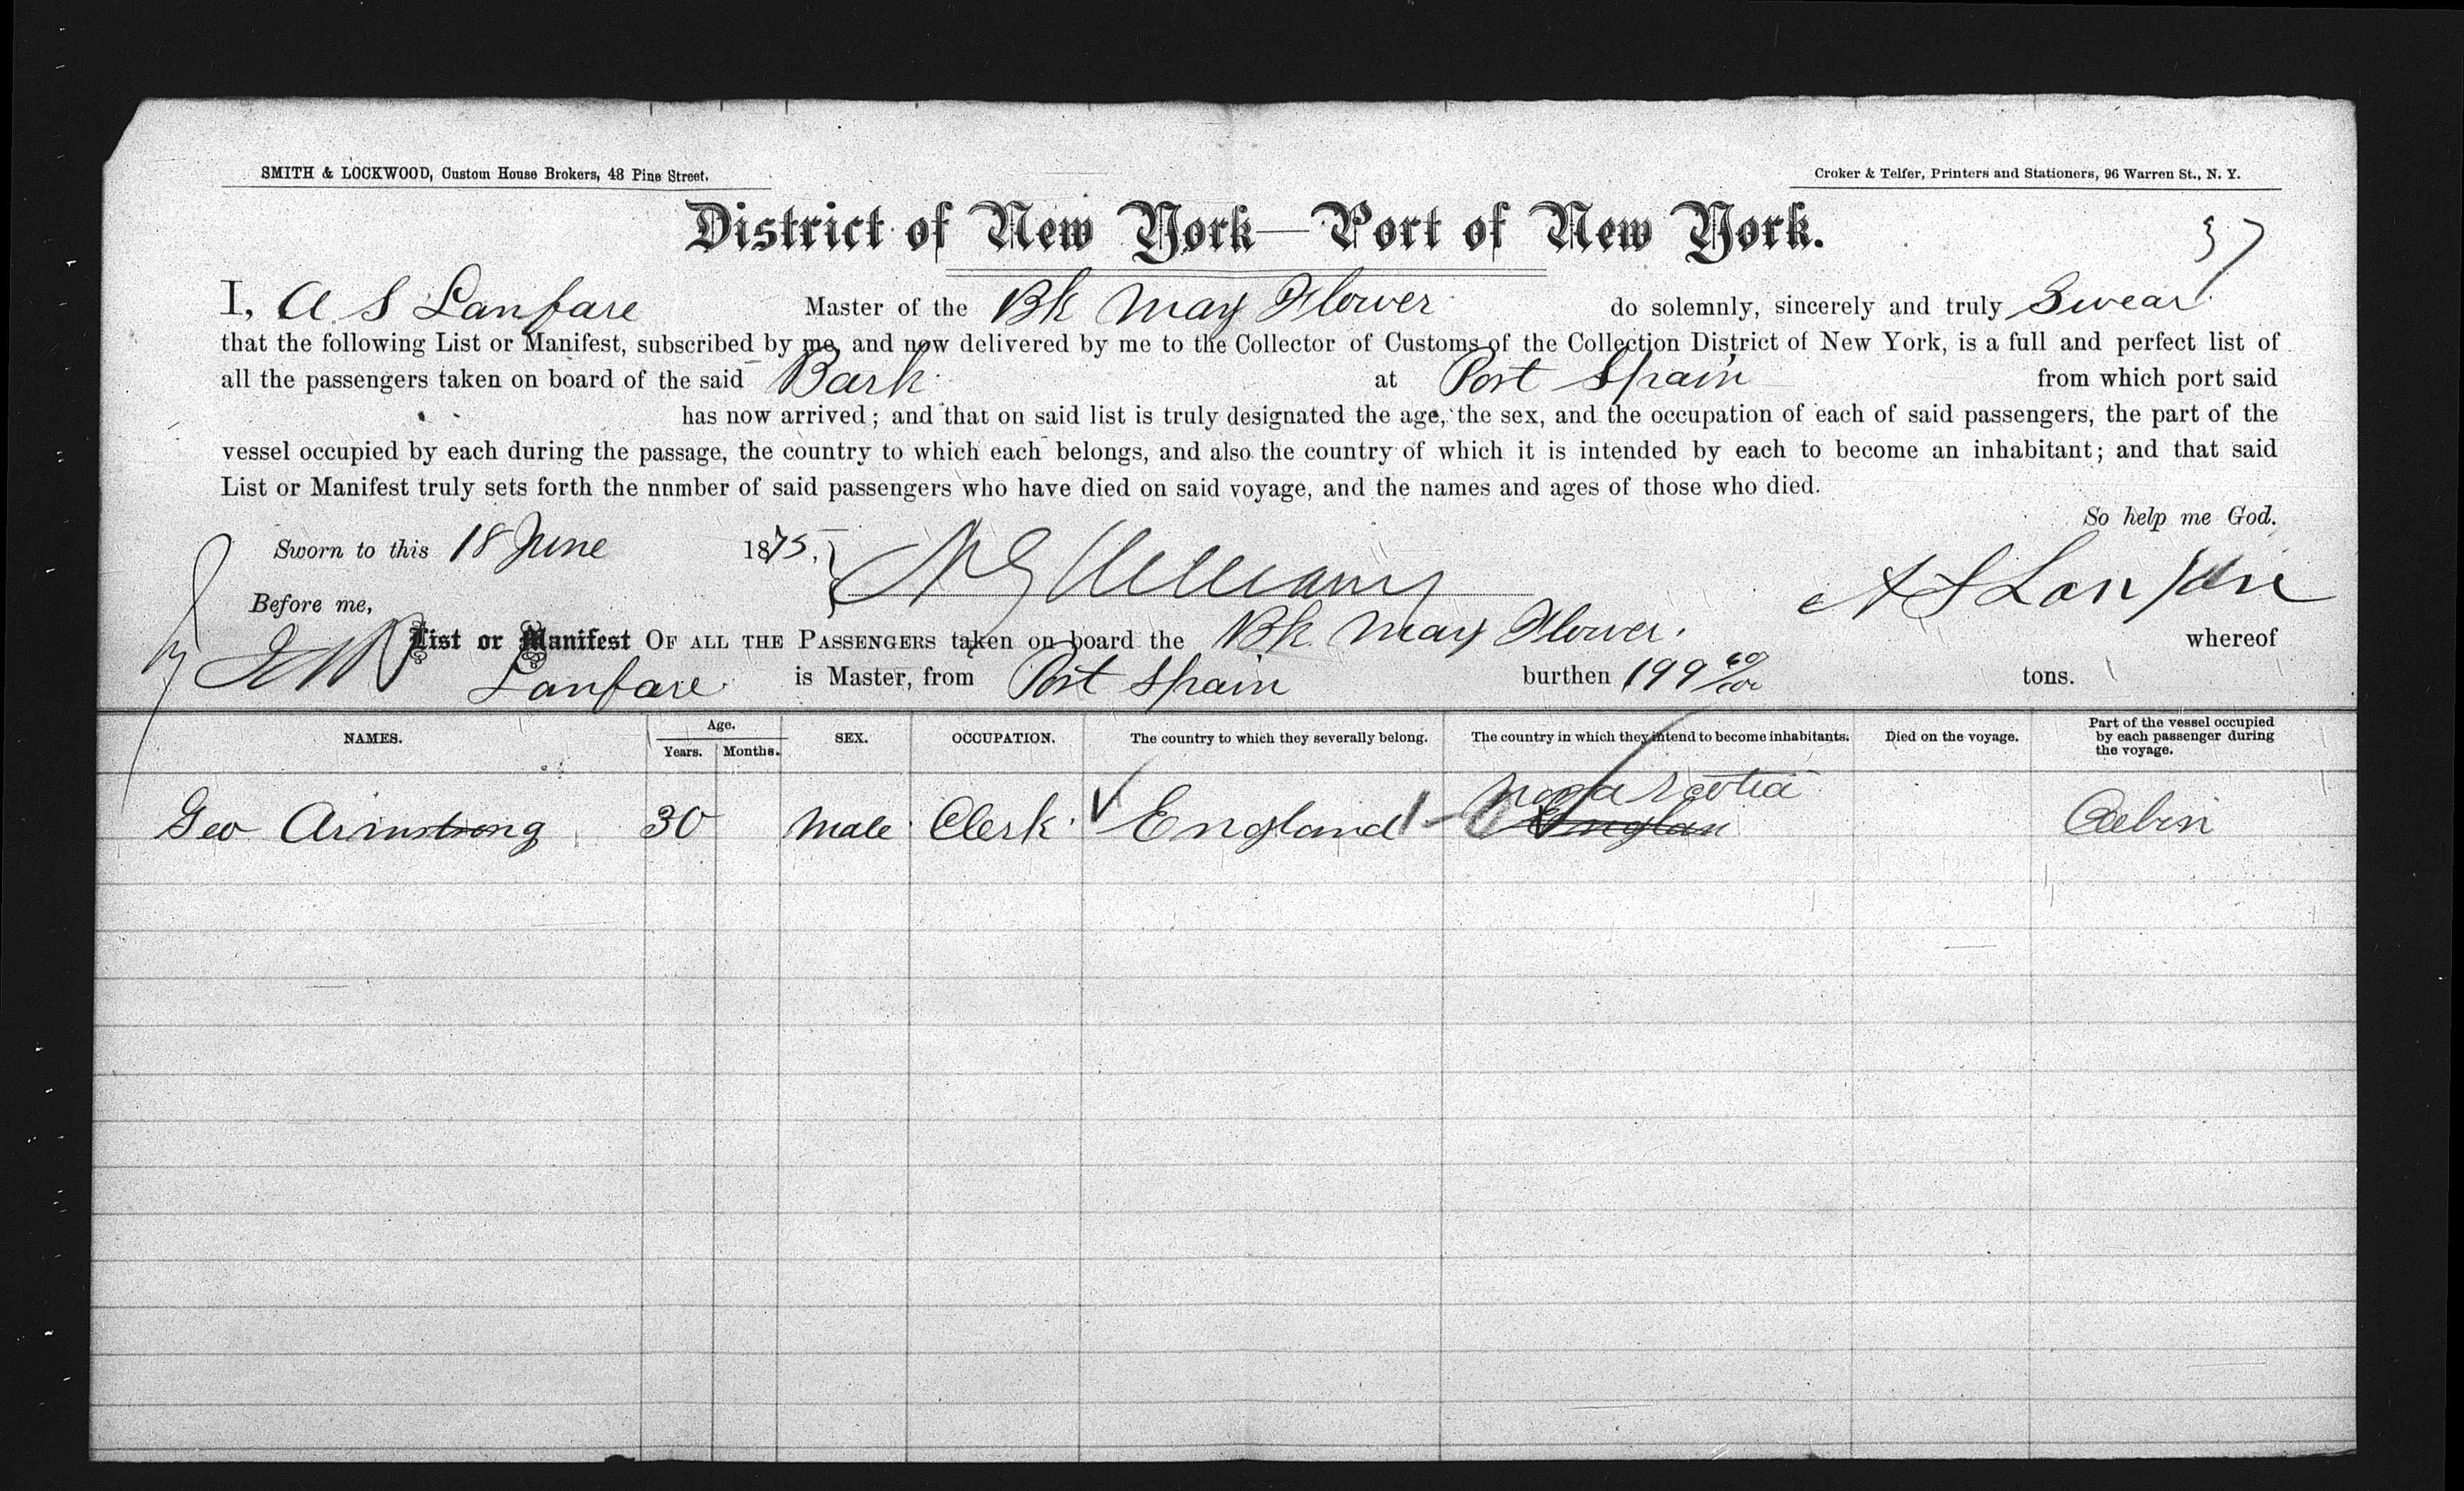 SMITH & LOCKWOOD, Custom House Brokers, 48 Pine Street.
Croker & Telfer, Printers and Stationers, 96 Warren St., N. Y.
District of New York—Port of New York.
37
I, A S Lanfare Master of the Bk May Flower do solemnly, sincerely and truly Swear
that the following List or Manifest, subscribed by me, and now delivered by me to the Collector of Customs of the Collection District of New York, is a full and perfect list of
all the passengers taken on board of the said Bark at Port Spain from which port said
has now arrived; and that on said list is truly designated the age, the sex, and the occupation of each of said passengers, the part of the
vessel occupied by each during the passage, the country to which each belongs, and also the country of which it is intended by each to become an inhabitant; and that said
List or Manifest truly sets forth the nnmber of said passengers who have died on said voyage, and the names and ages of those who died.
So help me God.
Sworn to this 18 June 1875. Williams
A S Lanfare
Before me,
List or Manifest OF ALL THE PASSENGERS taken on board the Bk May Flower. whereof
Lanfare is Master, from Port Spain burthen 199 60/100 tons.
NAMES. Age. Years. Months. SEX. OCCUPATION. The country to which they severally belong. The country in which they intend to become inhabitants. Died on the voyage. Part of the vessel occupied by each passenger during the voyage.
Nova Scotia
Geo Armstrong 30 Male Clerk. England Englan Cabin